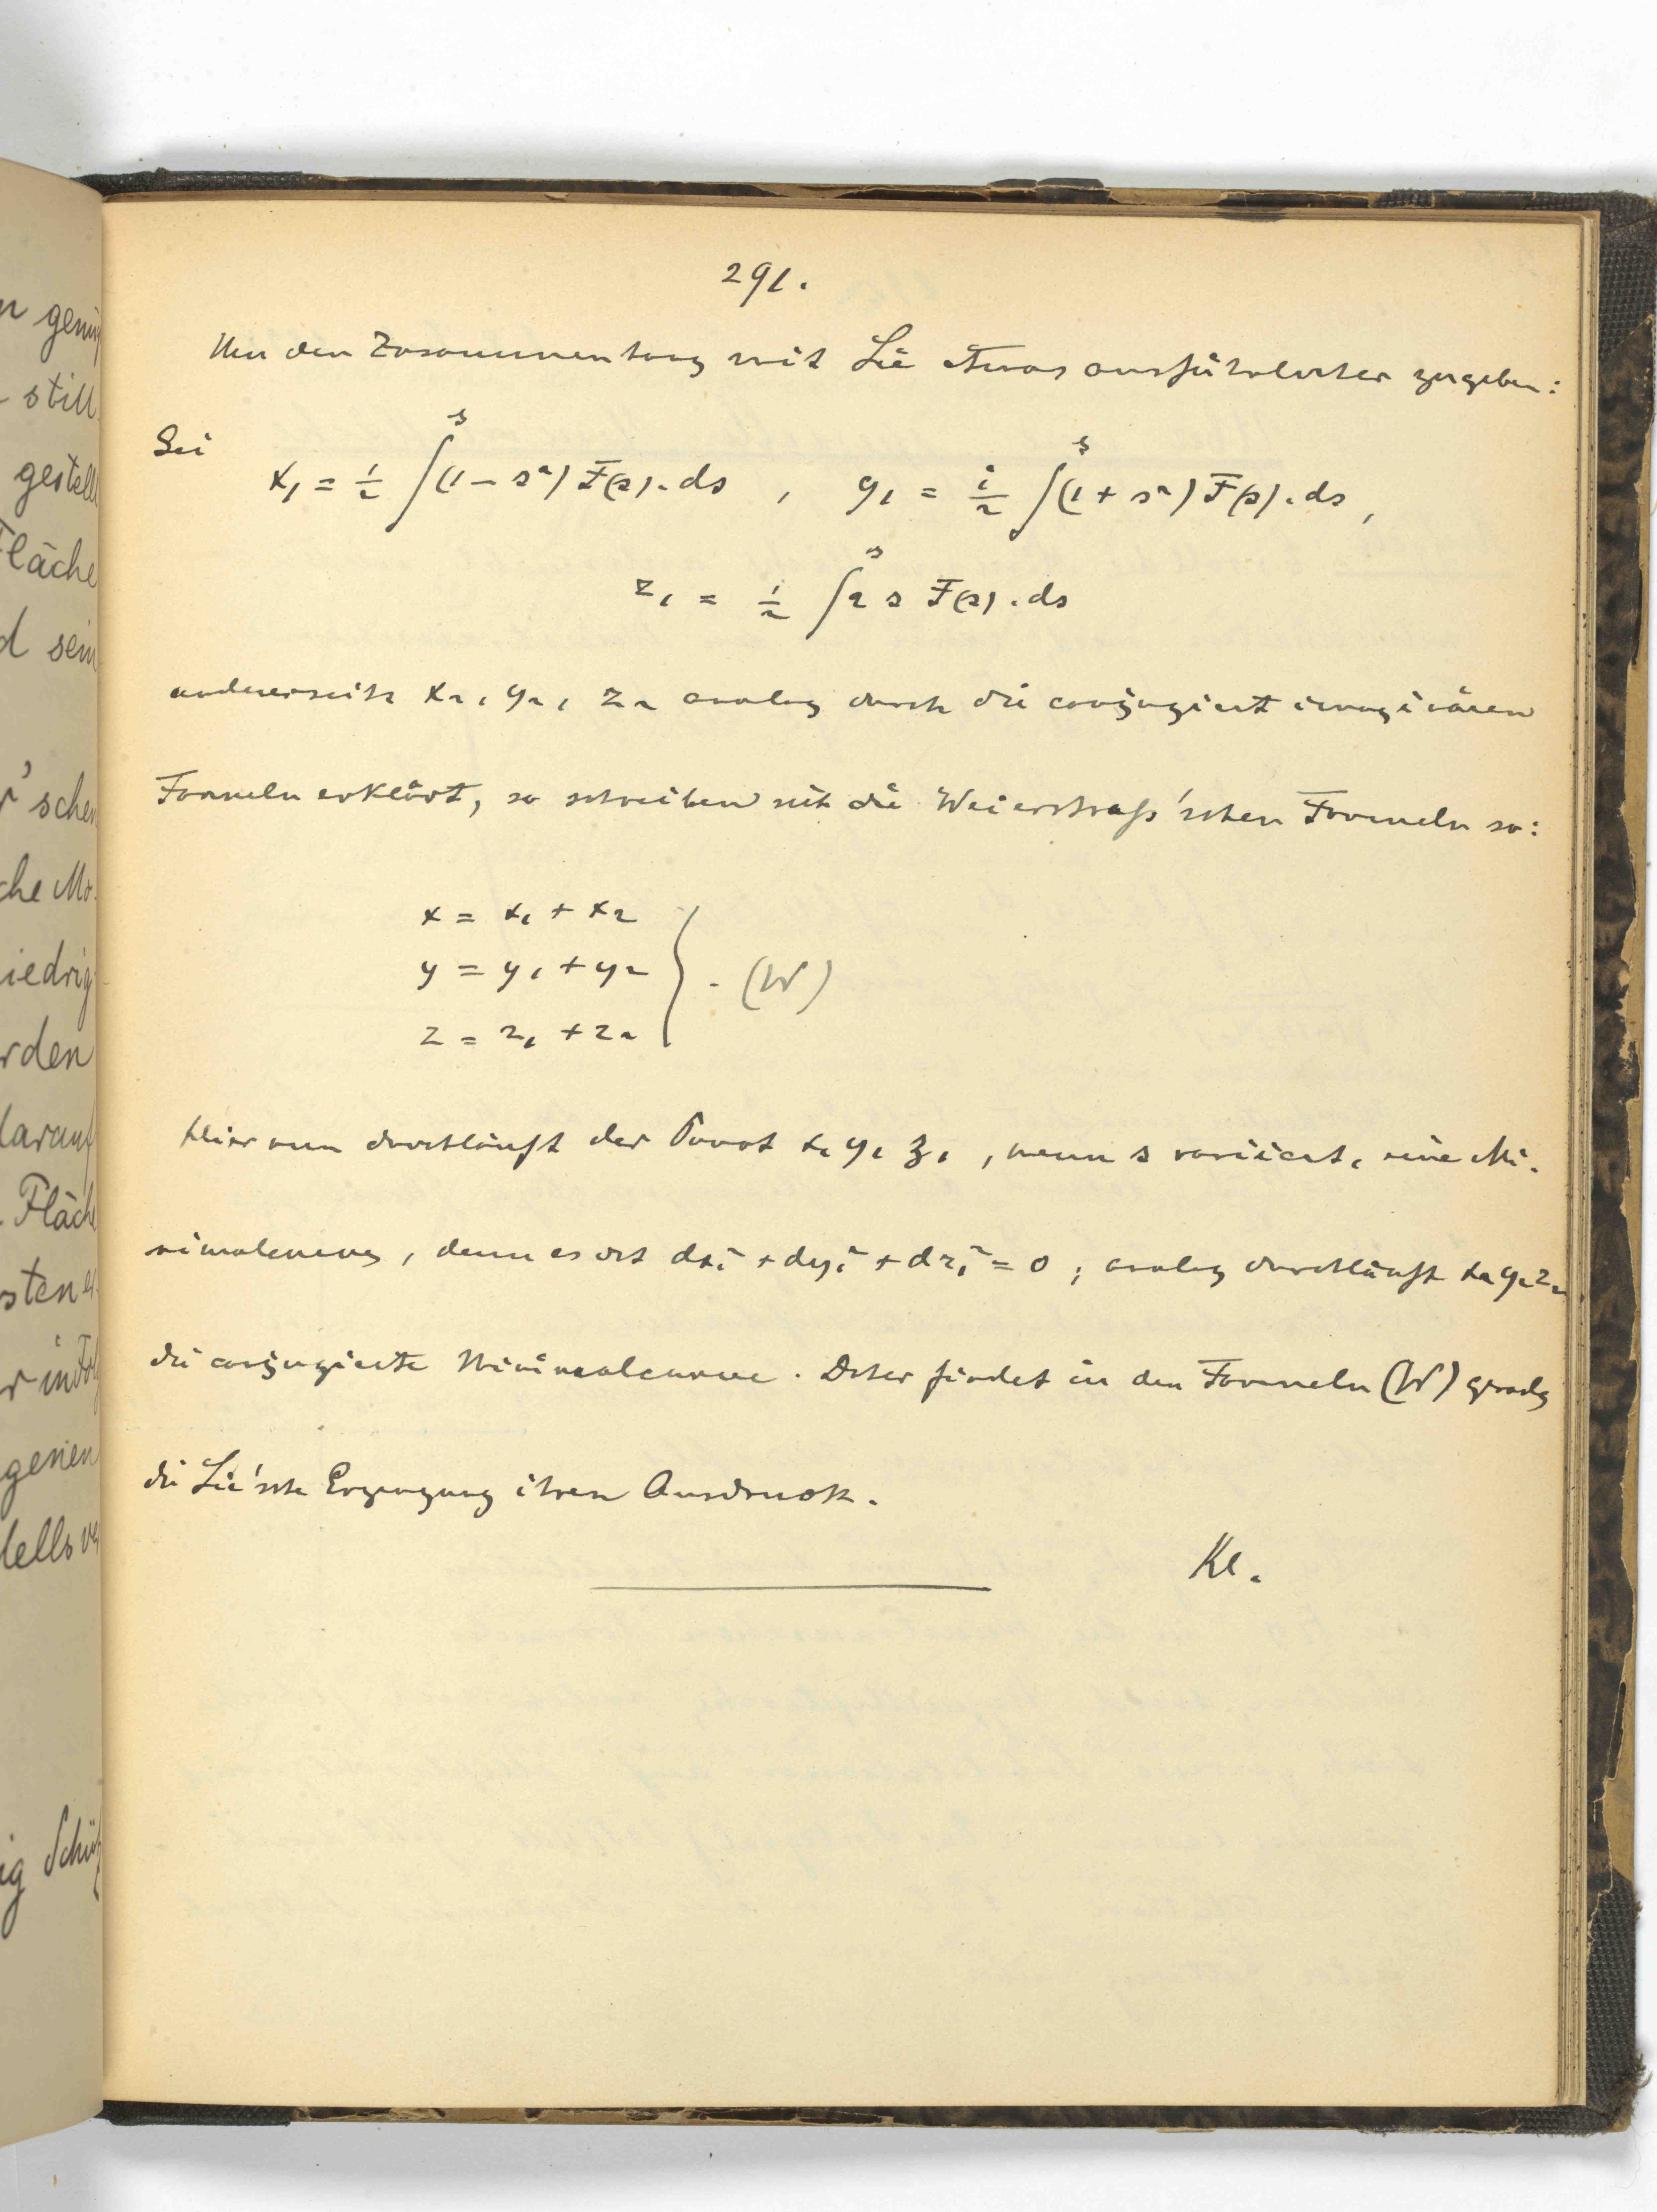 n genüg
still
gestellt
Fläche
d sein
r'schen
che Mo-
iedrig
rden
darauf
Fläche
sten
genen
dells
ig Schü
291.
Um den Zusammenhang mit Lie etwas ausführlicher zu geben:
Sei
x₁ = 1/2 ∫^s (1 – s²) F(s). ds , y₁ = i/2 ∫^s (1 + s²) F(s). ds,
z₁ = 1/2 ∫^s 2 s F(s). ds
andererseits x₂, y₂, z₂ analog durch die conjugiert imaginären
Formeln erklärt, so schreiben sich die Weierstraß'schen Formeln so:
x = x₁ + x₂
y = y₁ + y₂ } . (W)
z = z₁ + z₂
Hier nun durchläuft der Punct x₁ y₁ z₁, wenn s variiert, eine Mi-
nimalcurve, denn es ist dx₁² + dy₁² + dz₁² = 0; analog durchläuft x₂ y₂ z₂
die conjugierte Minimalcurve. Daher findet in den Formeln (W) grade
die Lie'sche Erzeugung ihren Ausdruck.
Kl.